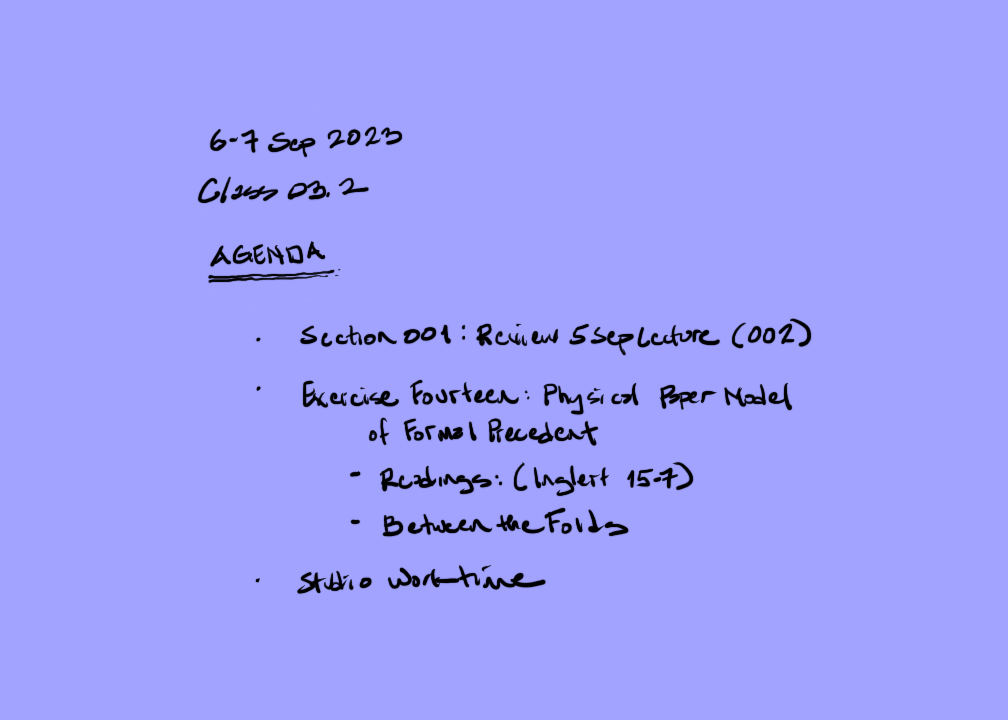 6-7 Sep 2023
Class 03.2
AGENDA
· Section 001: Review 5 Sep Lecture (002)
· Exercise Fourteen: Physical Paper Model
of Formal Precedent
- Readings: (Inglert 15-7)
- Between the Folds
· Studio Work-time